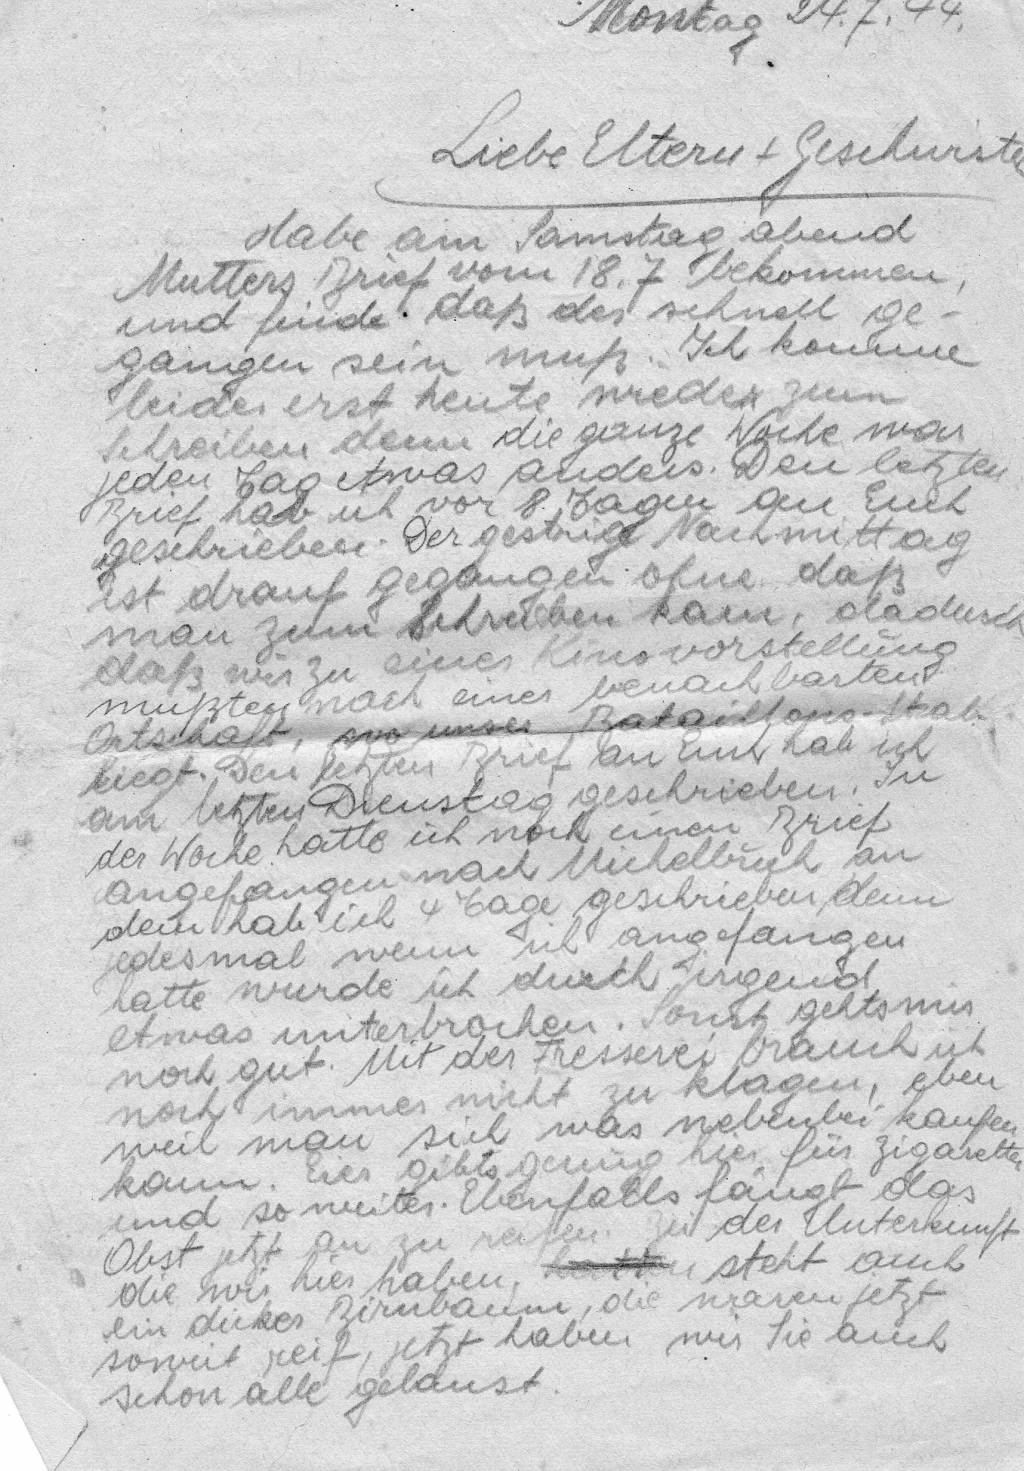 Montag 24.7.44.
1.
Liebe Eltern + Geschwister
Habe am Samstag abend
Mutters Brief vom 18.7 bekommen,
und finde daß der schnell ge-
gangen sein muß. Ich komme
leider erst heute wieder zum
schreiben denn die ganze Woche war
jeden Tag etwas anders. Den letzten
Brief hab ich vor 8 Tagen an Euch
geschrieben. Der gestrige Nachmittag
ist drauf gegangen ohne daß
man zum schreiben kam, dadurch
daß wir zu einer Kinovorstellung
mußten nach einer benachbarten
Ortschaft, wo unser Bataillons-Stab
liegt. Den letzten Brief an Euch hab ich
am letzten Dienstag geschrieben. In
der Woche hatte ich noch einen Brief
angefangen nach Michelbuch an
dem hab ich 4 Tage geschrieben, denn
jedesmal wenn ich angefangen
hatte wurde ich durch irgend
etwas unterbrochen. Sonst gehts mir
noch gut. Mit der Fresserei brauch ich
noch immer nicht zu klagen, eben
weil man sich was nebenbei kaufen
kann. Eier gibts genug hier für Zigaretten
und so weiter. Ebenfalls fängt das
Obst jetzt an zu reifen. Zu der Unterkunft
die wir hier haben, steht auch
ein dicker Birnbaum, die waren jetzt
soweit reif, jetzt haben wir Sie auch
schon alle gelaust.